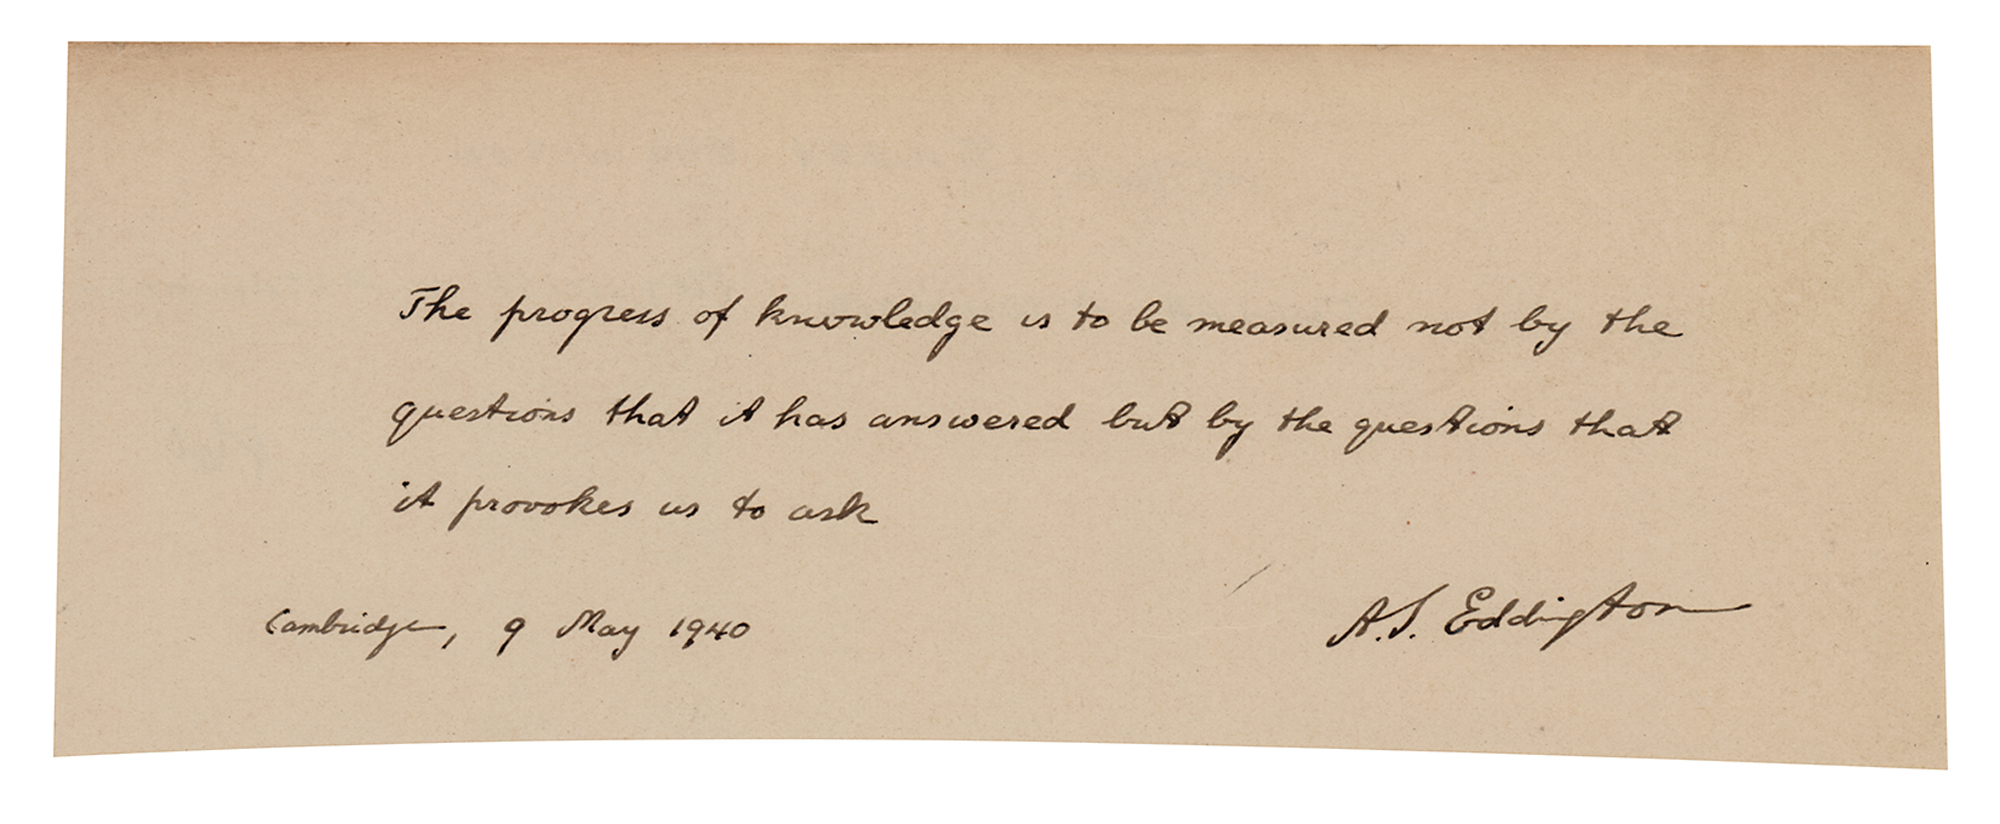 The progress of knowledge is to be measured not by the
questions that it has answered but by the questions that
it provokes us to ask
Cambridge, 9 May 1940
A.S. Eddington